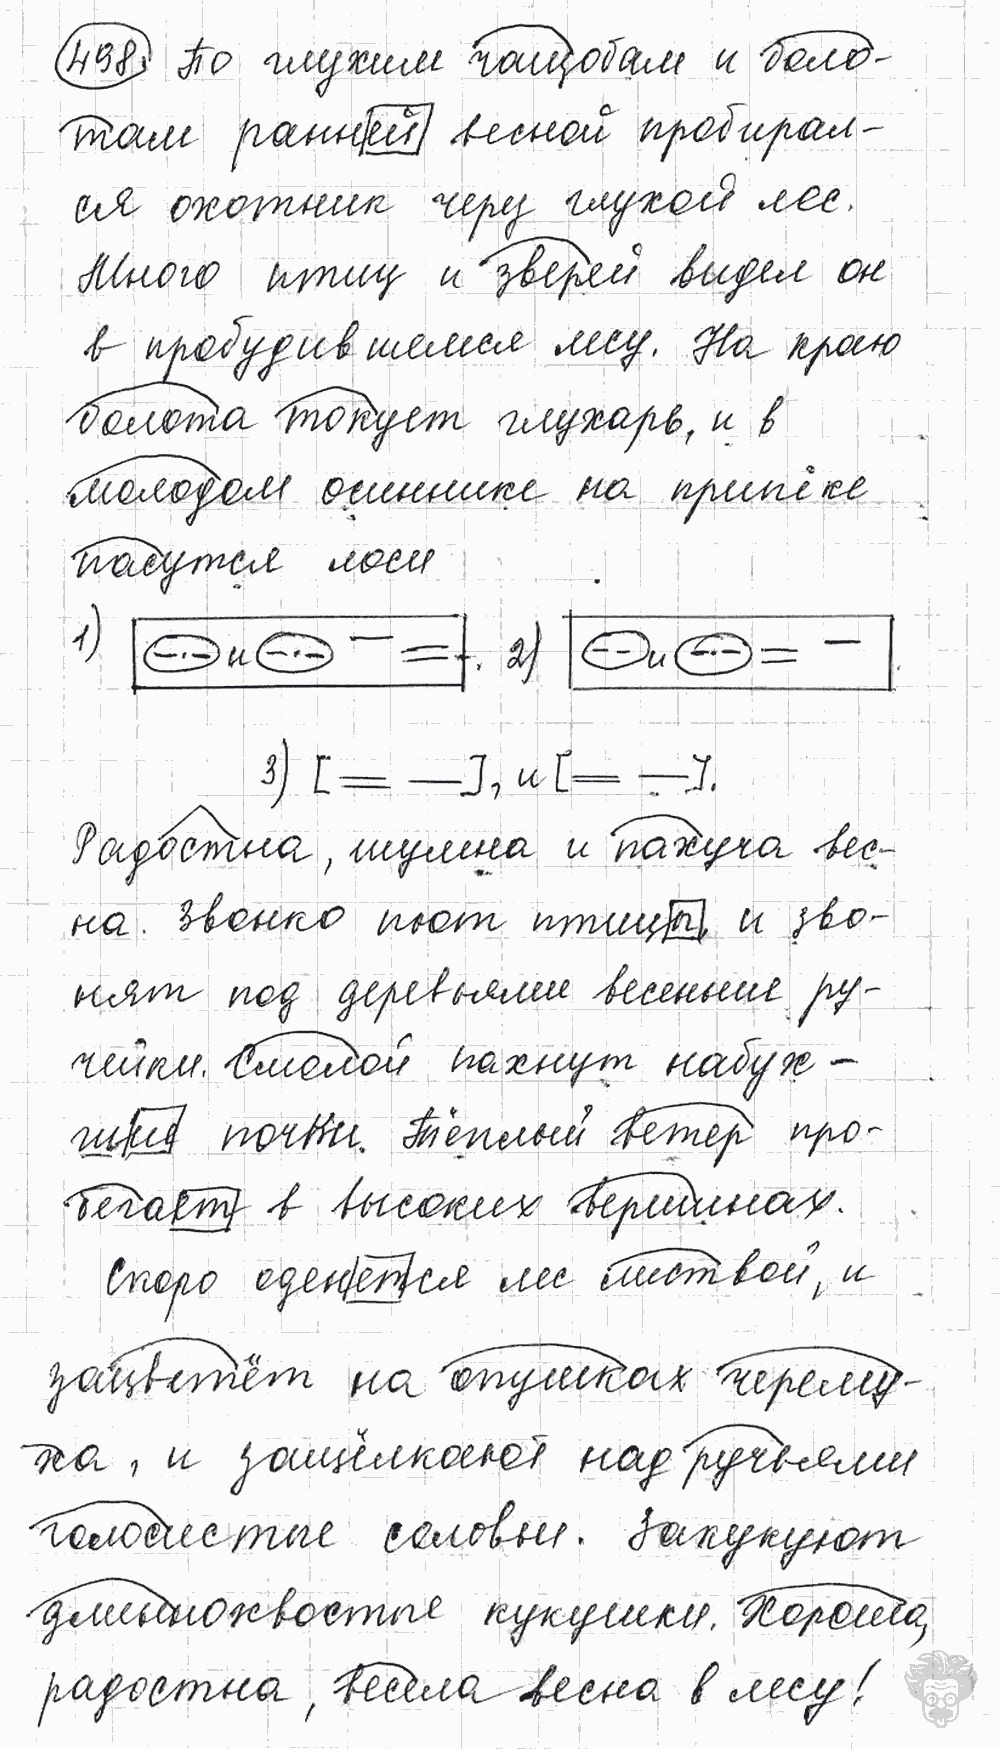 498. По глухим чащобам и боло-
там ранней весной пробирал-
ся охотник через глухой лес.
Много птиц и зверей видел он
в пробудившемся лесу. На краю
болота токует глухарь, и в
молодом осиннике на припёке
пасутся лоси
1) и . 2) и
3) [ ], и [ ].
Радостна, шумна и пахуча вес-
на. Звонко поют птицы, и зво-
нят под деревьями весенние ру-
чейки. Смолой пахнут набух-
шие почки. Тёплый ветер про-
бегает в высоких вершинах.
Скоро оденется лес листвой, и
зацветёт на опушках черёму-
ха, и защёлкают над ручьями
голосистые соловьи. Закукуют
длиннохвостые кукушки. Хороша,
радостна, весела весна в лесу!